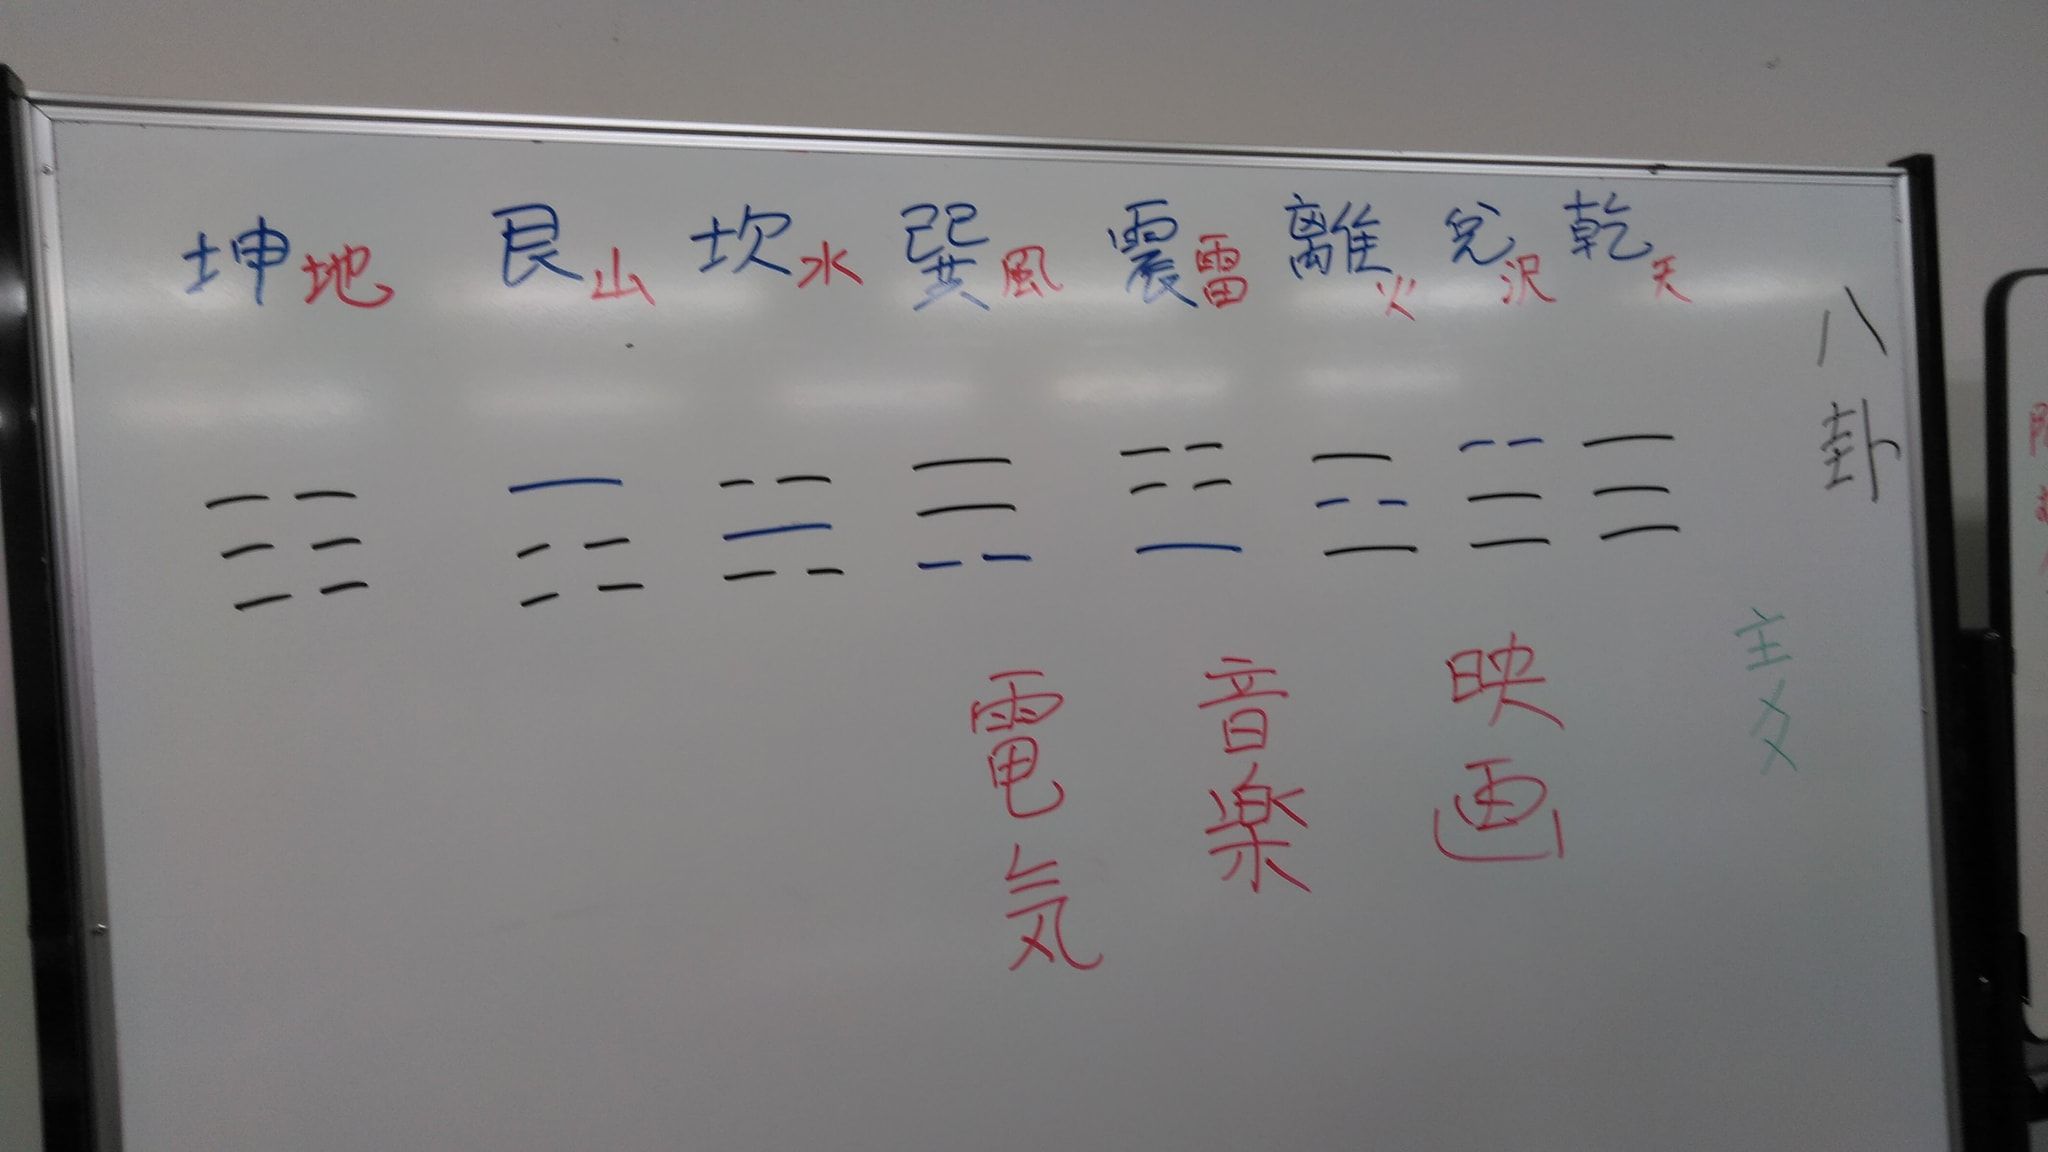 八卦
主爻
乾天
兌沢
離火
震雷
巽風
坎水
艮山
坤地
映画
音楽
電気